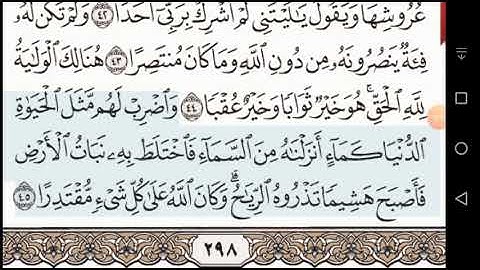 عُرُوشِهَا وَيَقُولُ يَٰلَيْتَنِى لَمْ أُشْرِكْ بِرَبِّىٓ أَحَدًا ٤٢ وَلَمْ تَكُن لَّهُۥ
فِئَةٌ يَنصُرُونَهُۥ مِن دُونِ ٱللَّهِ وَمَا كَانَ مُنتَصِرًا ٤٣ هُنَالِكَ ٱلْوَلَٰيَةُ
لِلَّهِ ٱلْحَقِّ ۚ هُوَ خَيْرٌ ثَوَابًا وَخَيْرٌ عُقْبًا ٤٤ وَٱضْرِبْ لَهُم مَّثَلَ ٱلْحَيَوٰةِ
ٱلدُّنْيَا كَمَآءٍ أَنزَلْنَٰهُ مِنَ ٱلسَّمَآءِ فَٱخْتَلَطَ بِهِۦ نَبَاتُ ٱلْأَرْضِ
فَأَصْبَحَ هَشِيمًا تَذْرُوهُ ٱلرِّيَٰحُ ۗ وَكَانَ ٱللَّهُ عَلَىٰ كُلِّ شَىْءٍ مُّقْتَدِرًا ٤٥
٢٩٨